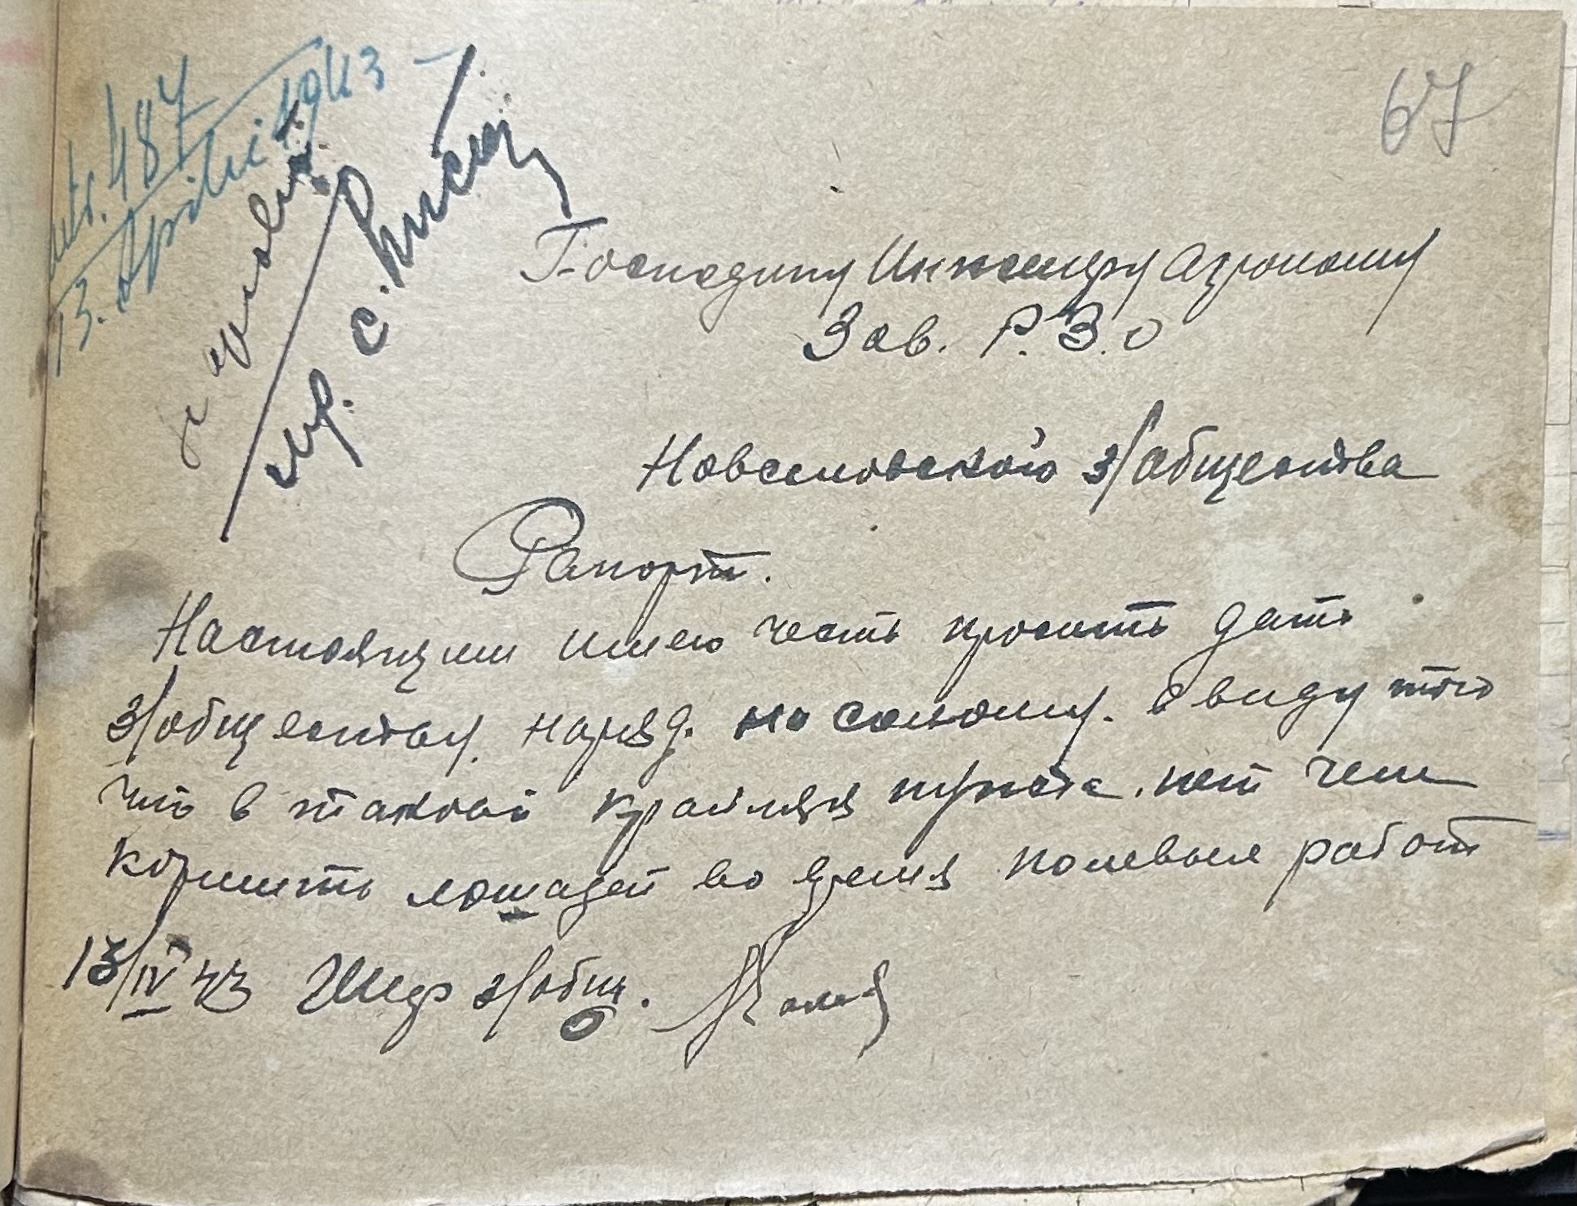 Intr. 487
13. Aprilie 1943 -
67
Господину Инженеру Агроному
Зав. Р.З.О
Новселовского з/общества
Рапорт.
Настоящим имею честь просить дать
з/обществу. наряд. на солому. в виду того
что в таковой крайняя нужда. нет чем
кормить лошадей во время полевые работ
13/IV 43 Шеф з/общ.